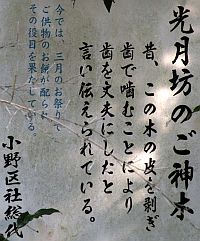 光月坊のご神木
昔、この木の皮を剥ぎ
歯で噛むことにより
歯を丈夫にしたと
言い伝えられている。
今では、三月のお祭りで
ご供物のお餅が配られ
その役目を果たしている。
小野区社総代